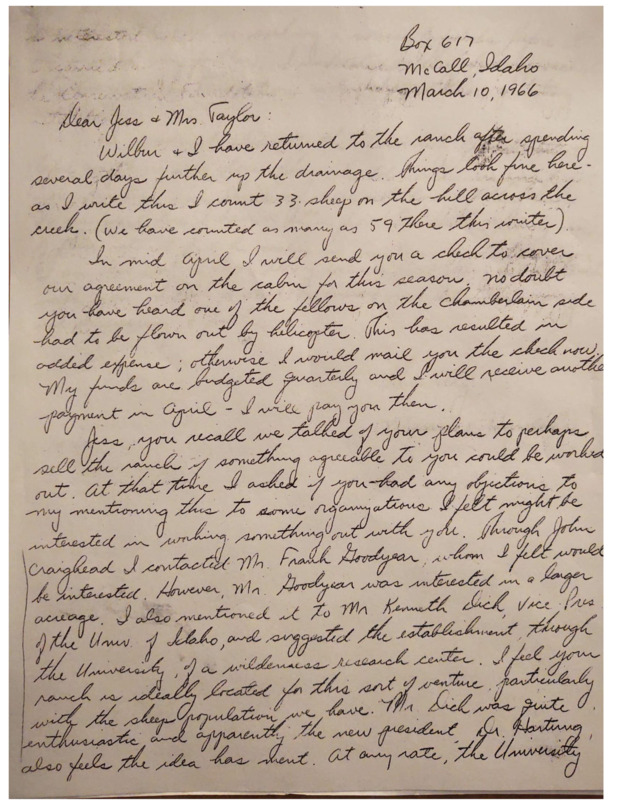 Box 617
McCall, Idaho
March 10, 1966
Dear Jess & Mrs Taylor:
Wilbur & I have returned to the ranch after spending
several days further up the drainage. Things look fine here -
as I write this I count 33 sheep on the hill across the
creek. (We have counted as many as 59 there this winter).
In mid April I will send you a check to cover
our agreement on the cabin for this season. No doubt
you have heard one of the fellows on the Chamberlain side
had to be flown out by helicopter. This has resulted in
added expense; otherwise I would mail you the check now.
My funds are budgeted quarterly and I will receive anothe
payment in April - I will pay you then.
Jess, you recall we talked of your plans to perhaps
sell the ranch if something agreeable to you could be worked
out. At that time I asked if you had any objections to
my mentioning this to some organizations I felt might be
interested in working something out with you. Through John
Craighead I contacted Mr. Frank Goodyear, whom I felt would
be interested. However, Mr. Goodyear was interested in a larger
acreage. I also mentioned it to Mr Kenneth Dick, Vice Pres
of the Univ. of Idaho, and suggested the establishment, through
the University, of a wilderness research center. I feel your
ranch is ideally located for this sort of venture, particularly
with the sheep population we have. Mr. Dick was quite
enthusiastic and apparently the new president, Dr. Hartung,
also feels the idea has merit. At any rate, the University